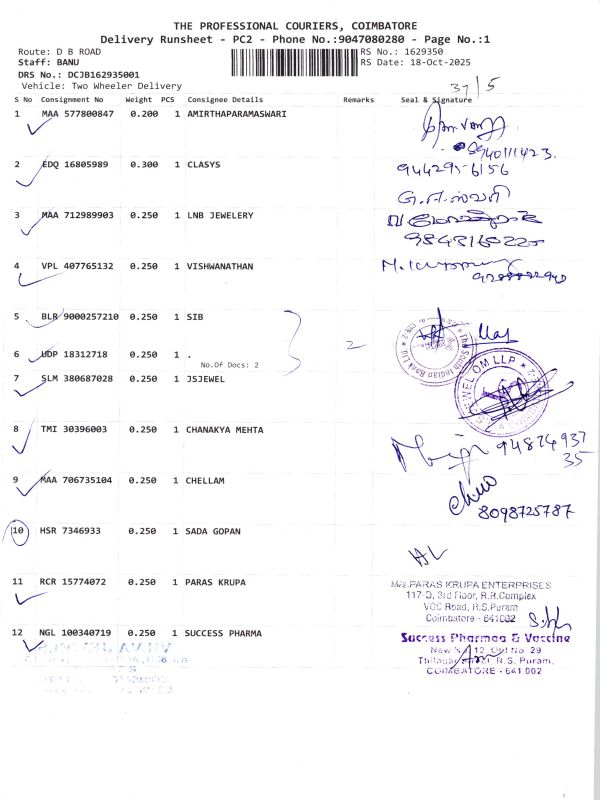 THE PROFESSIONAL COURIERS, COIMBATORE
Delivery Runsheet - PC2 - Phone No.:9047080280 - Page No.:1
Route: D B ROAD RS No.: 1629350
Staff: BANU RS Date: 18-Oct-2025
DRS No.: DCJB162935001
Vehicle: Two Wheeler Delivery 37/5
S No Consignment No Weight PCS Consignee Details Remarks Seal & Signature
1 MAA 577800847 0.200 1 AMIRTHAPARAMASWARI
2 EDQ 16805989 0.300 1 CLASYS 9442956156
3 MAA 712989903 0.250 1 LNB JEWELERY
4 VPL 407765132 0.250 1 VISHWANATHAN
5 BLR 9000257210 0.250 1 SIB
2
6 UDP 18312718 0.250 1 .
No.Of Docs: 2
7 SLM 380687028 0.250 1 JSJEWEL
8 TMI 30396003 0.250 1 CHANAKYA MEHTA 94874937
35
9 MAA 706735104 0.250 1 CHELLAM
8098725787
10 HSR 7346933 0.250 1 SADA GOPAN
11 RCR 15774072 0.250 1 PARAS KRUPA
M/s.PARAS KRUPA ENTERPRISES
117-D, 3rd Floor, R.R.Complex
VOC Road, R.S.Puram
Coimbatore - 641002
12 NGL 100340719 0.250 1 SUCCESS PHARMA
Success Pharmaa & Vaccine
New No. 12, Old No. 29
Street, R.S. Puram,
COIMBATORE - 641 002